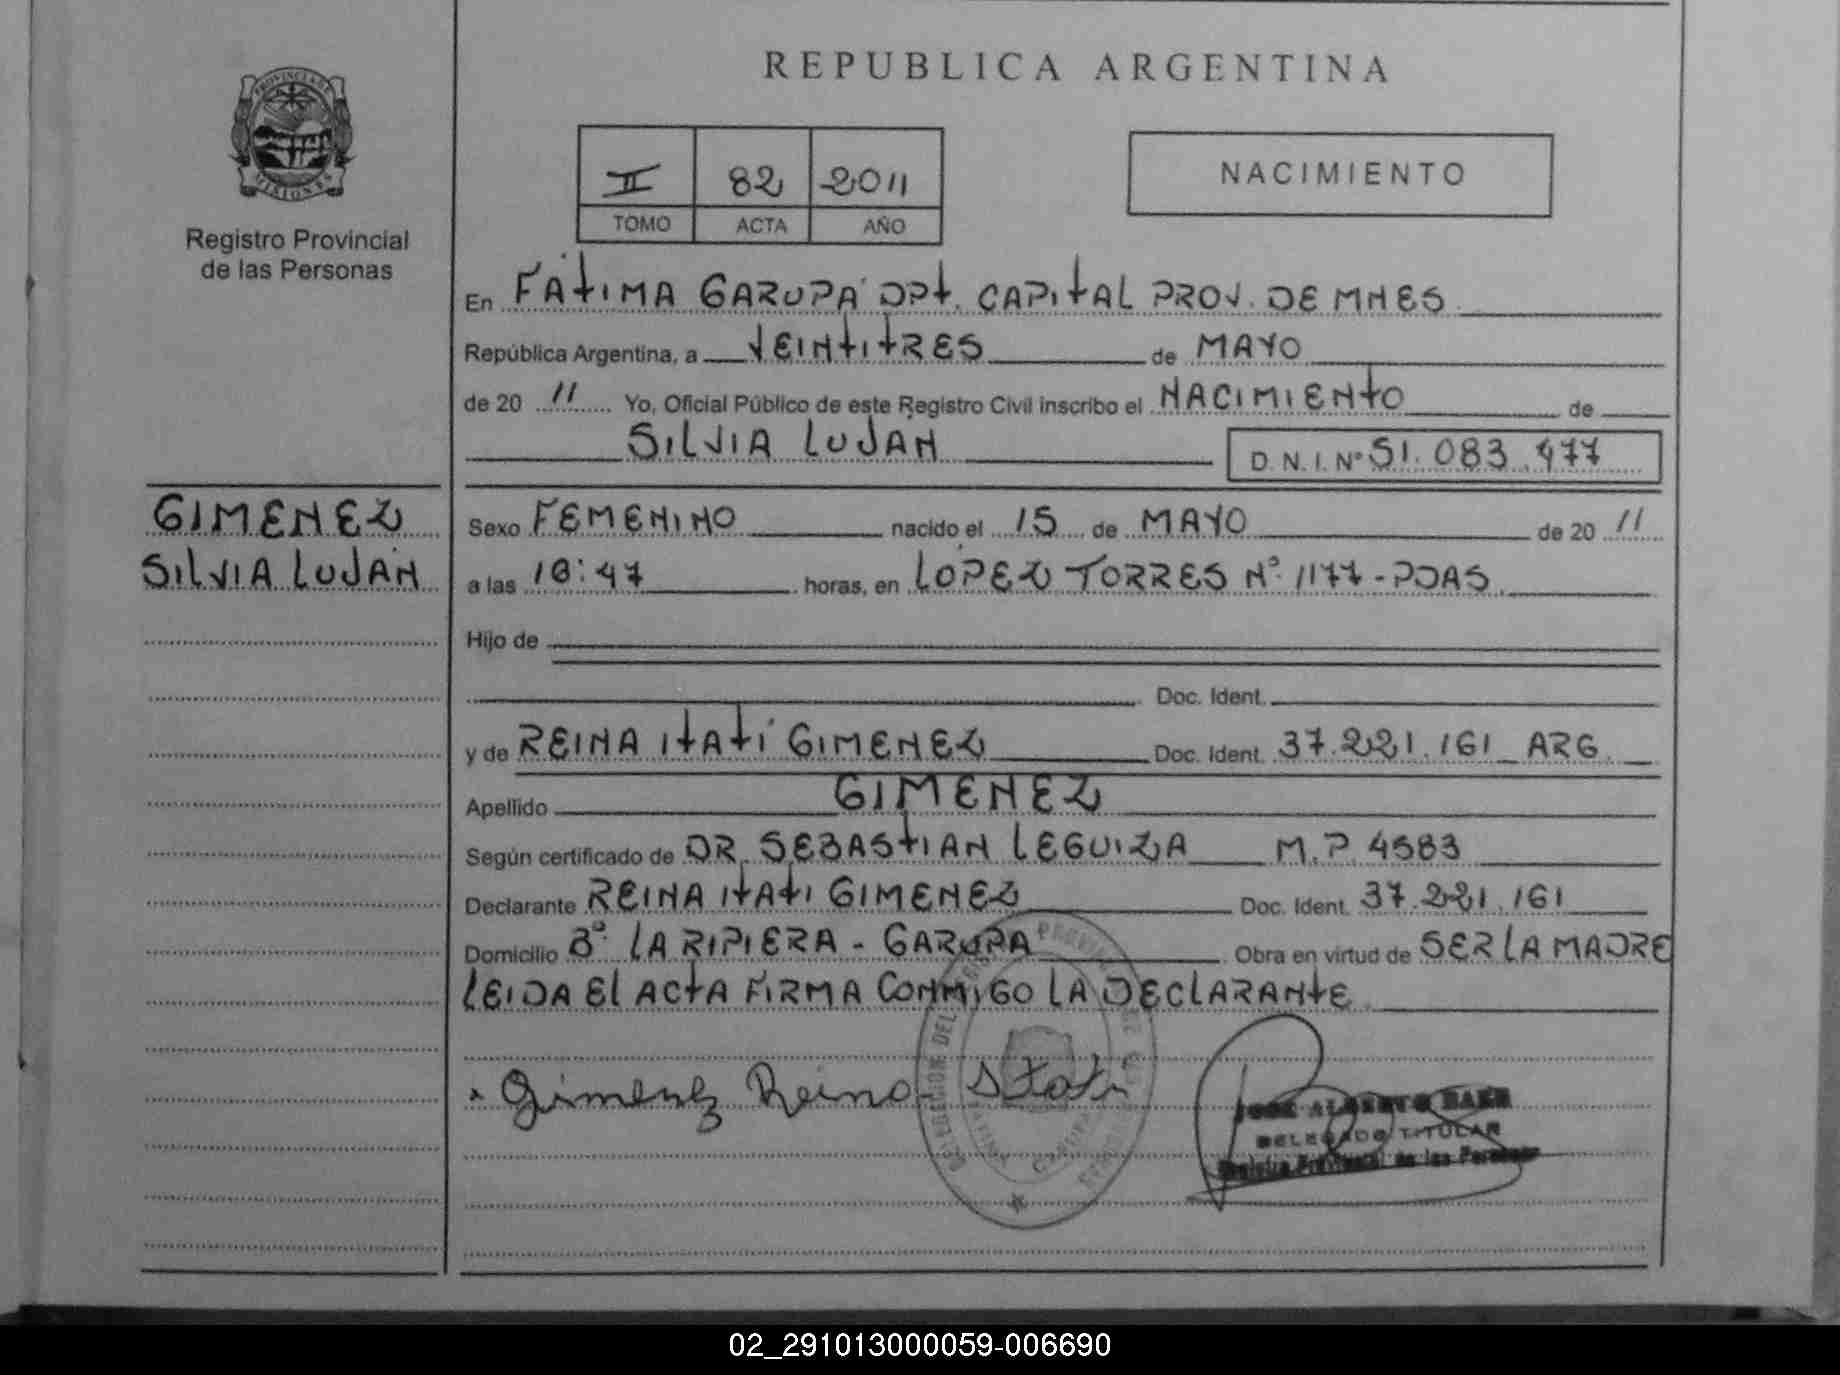 REPUBLICA ARGENTINA
PROVINCIA DE MISIONES
Registro Provincial
de las Personas
II 82 2011
TOMO ACTA AÑO
NACIMIENTO
En FÁTIMA GARUPÁ DPT. CAPITAL PROV. DE MNES.
República Argentina, a VEINTITRES de MAYO
de 20 11 Yo, Oficial Público de este Registro Civil inscribo el NACIMIENTO de
SILVIA LUJÁN D.N.I. Nº 51.083.477
GIMENEZ
SILVIA LUJÁN
Sexo FEMENINO nacido el 15 de MAYO de 20 11
a las 18:47 horas, en LÓPEZ TORRES Nº 1177 - PDAS.
Hijo de
Doc. Ident.
y de REINA ITATÍ GIMENEZ Doc. Ident. 37.221.161 ARG.
Apellido GIMENEZ
Según certificado de DR. SEBASTIAN LEGUIZA M.P. 4583
Declarante REINA ITATI GIMENEZ Doc. Ident. 37.221.161
Domicilio Bº LA RIPIERA - GARUPA Obra en virtud de SER LA MADRE
LEIDA El ACTA FIRMA CONMIGO LA DECLARANTE.
Gimenez Reina Itati
JOSE ALBERTO BAEZ
DELEGADO TITULAR
Registro Provincial de las Personas
02_291013000059-006690